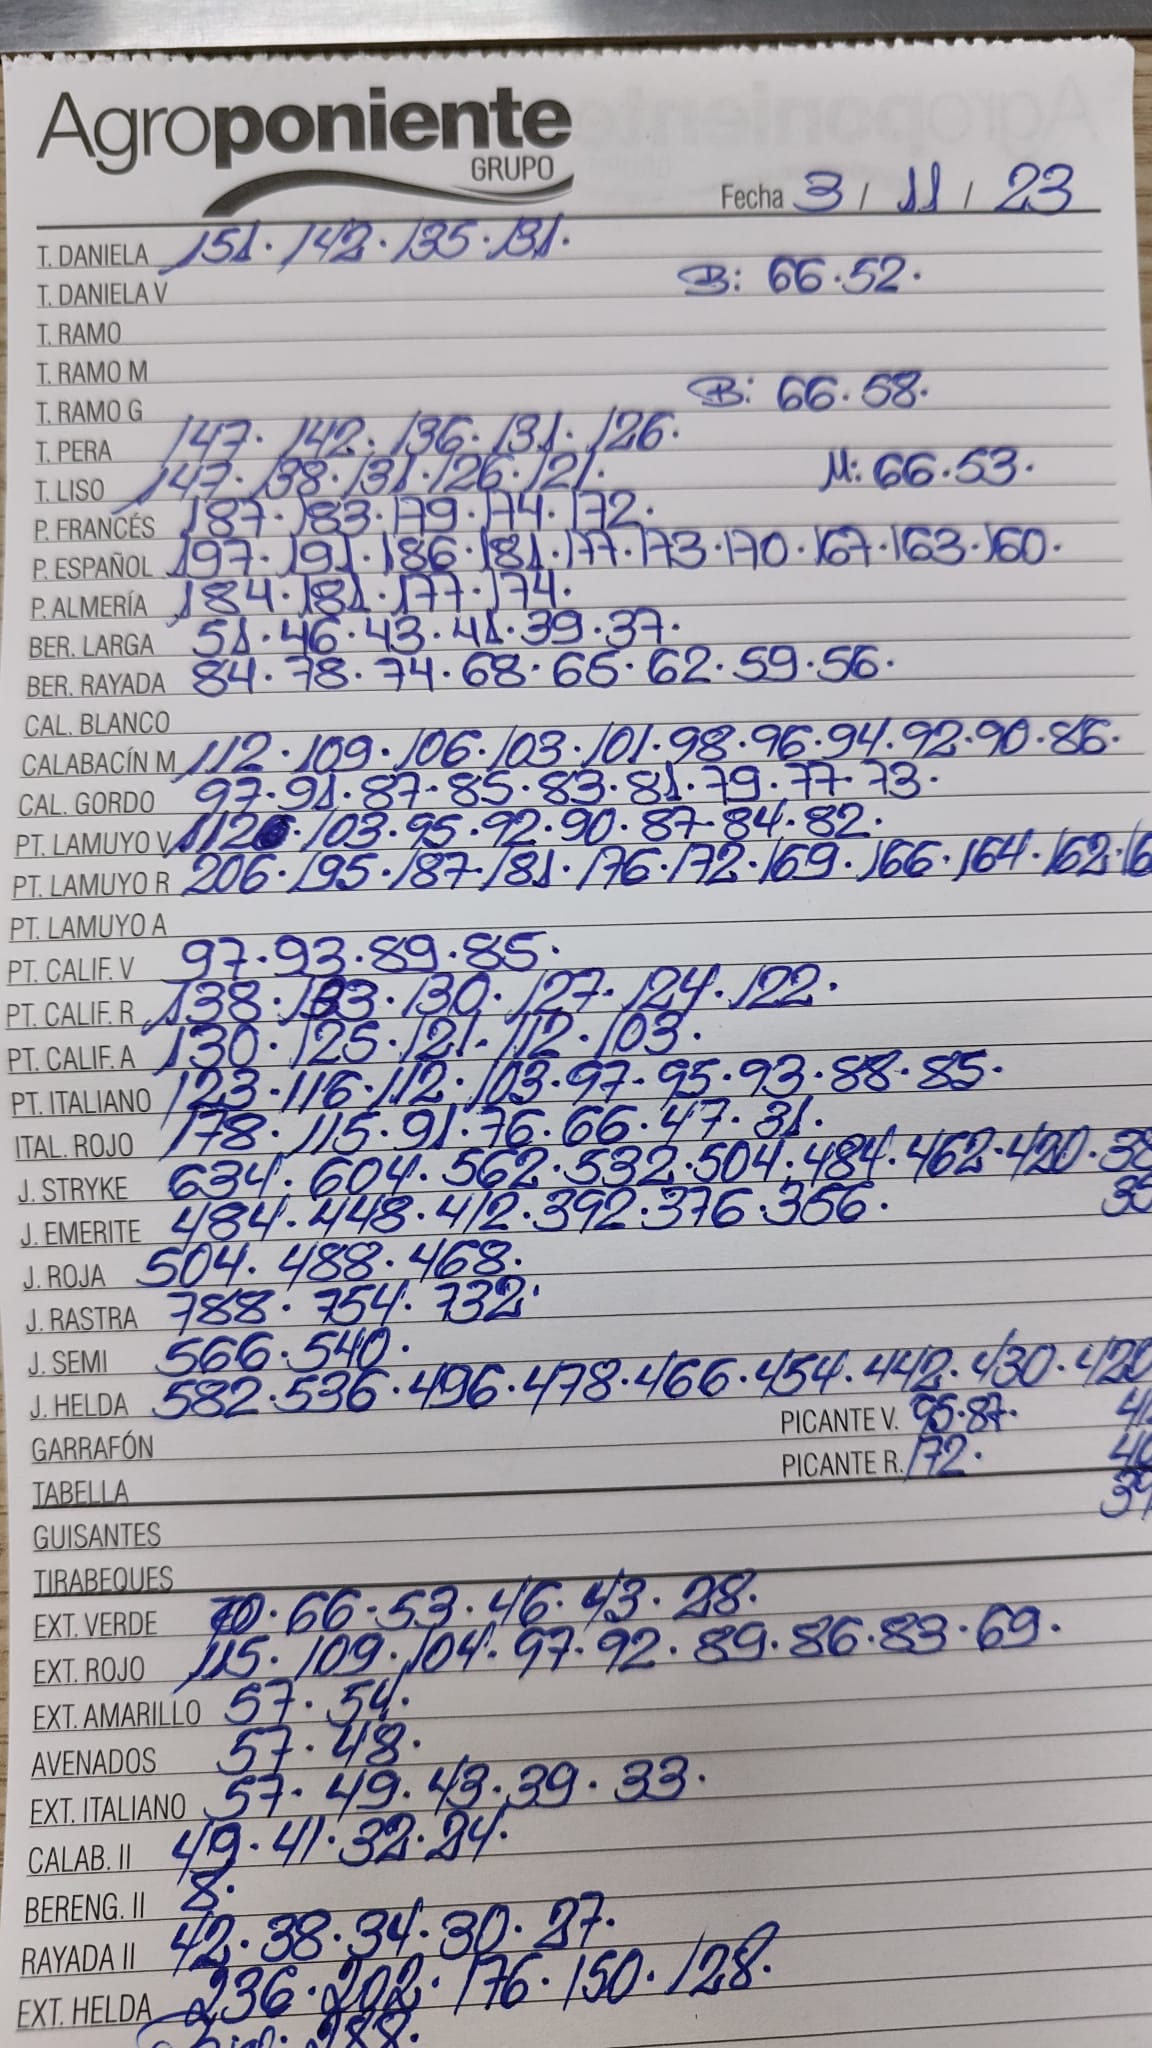 Agroponiente
GRUPO
Fecha 3 / 11 / 23
T. DANIELA 151. 142. 135. 131.
T. DANIELA V B: 66.52.
T. RAMO
T. RAMO M
T. RAMO G B: 66.58.
T. PERA 147. 142. 136. 131. 126.
T. LISO 147. 138. 131. 126. 121. M: 66.53.
P. FRANCÉS 187. 183. 179. 174. 172.
P. ESPAÑOL 197. 191. 186. 181. 177. 173. 170. 167. 163. 160.
P. ALMERÍA 184. 181. 177. 174.
BER. LARGA 51. 46. 43. 41. 39. 37.
BER. RAYADA 84. 78. 74. 68. 65. 62. 59. 56.
CAL. BLANCO
CALABACÍN M 112. 109. 106. 103. 101. 98. 96. 94. 92. 90. 86.
CAL. GORDO 97. 91. 87. 85. 83. 81. 79. 77. 73.
PT. LAMUYO V 112. 103. 95. 92. 90. 87. 84. 82.
PT. LAMUYO R 206. 195. 187. 181. 176. 172. 169. 166. 164. 162.
PT. LAMUYO A
PT. CALIF. V 97. 93. 89. 85.
PT. CALIF. R 138. 133. 130. 127. 124. 122.
PT. CALIF. A 130. 125. 121. 112. 103.
PT. ITALIANO 123. 116. 112. 103. 97. 95. 93. 88. 85.
ITAL. ROJO 178. 115. 91. 76. 66. 47. 31.
J. STRYKE 634. 604. 562. 532. 504. 484. 462. 420.
J. EMERITE 484. 448. 412. 392. 376. 356.
J. ROJA 504. 488. 468.
J. RASTRA 788. 754. 732.
J. SEMI 566. 540.
J. HELDA 582. 536. 496. 478. 466. 454. 442. 430. 420
PICANTE V. 95. 87.
GARRAFÓN
PICANTE R. 172.
TABELLA
GUISANTES
TIRABEQUES
EXT. VERDE 70. 66. 53. 46. 43. 28.
EXT. ROJO 115. 109. 104. 97. 92. 89. 86. 83. 69.
EXT. AMARILLO 57. 54.
AVENADOS 57. 48.
EXT. ITALIANO 57. 49. 43. 39. 33.
CALAB. II 49. 41. 32. 24.
BERENG. II 8.
RAYADA II 42. 38. 34. 30. 27.
EXT. HELDA 236. 202. 176. 150. 128.
288.